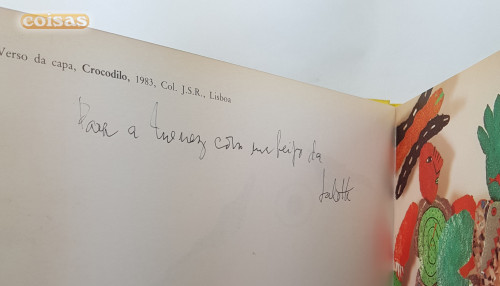 coisas
Verso da capa, Crocodilo, 1983, Col. J.S.R., Lisboa
Para a com um beijo da